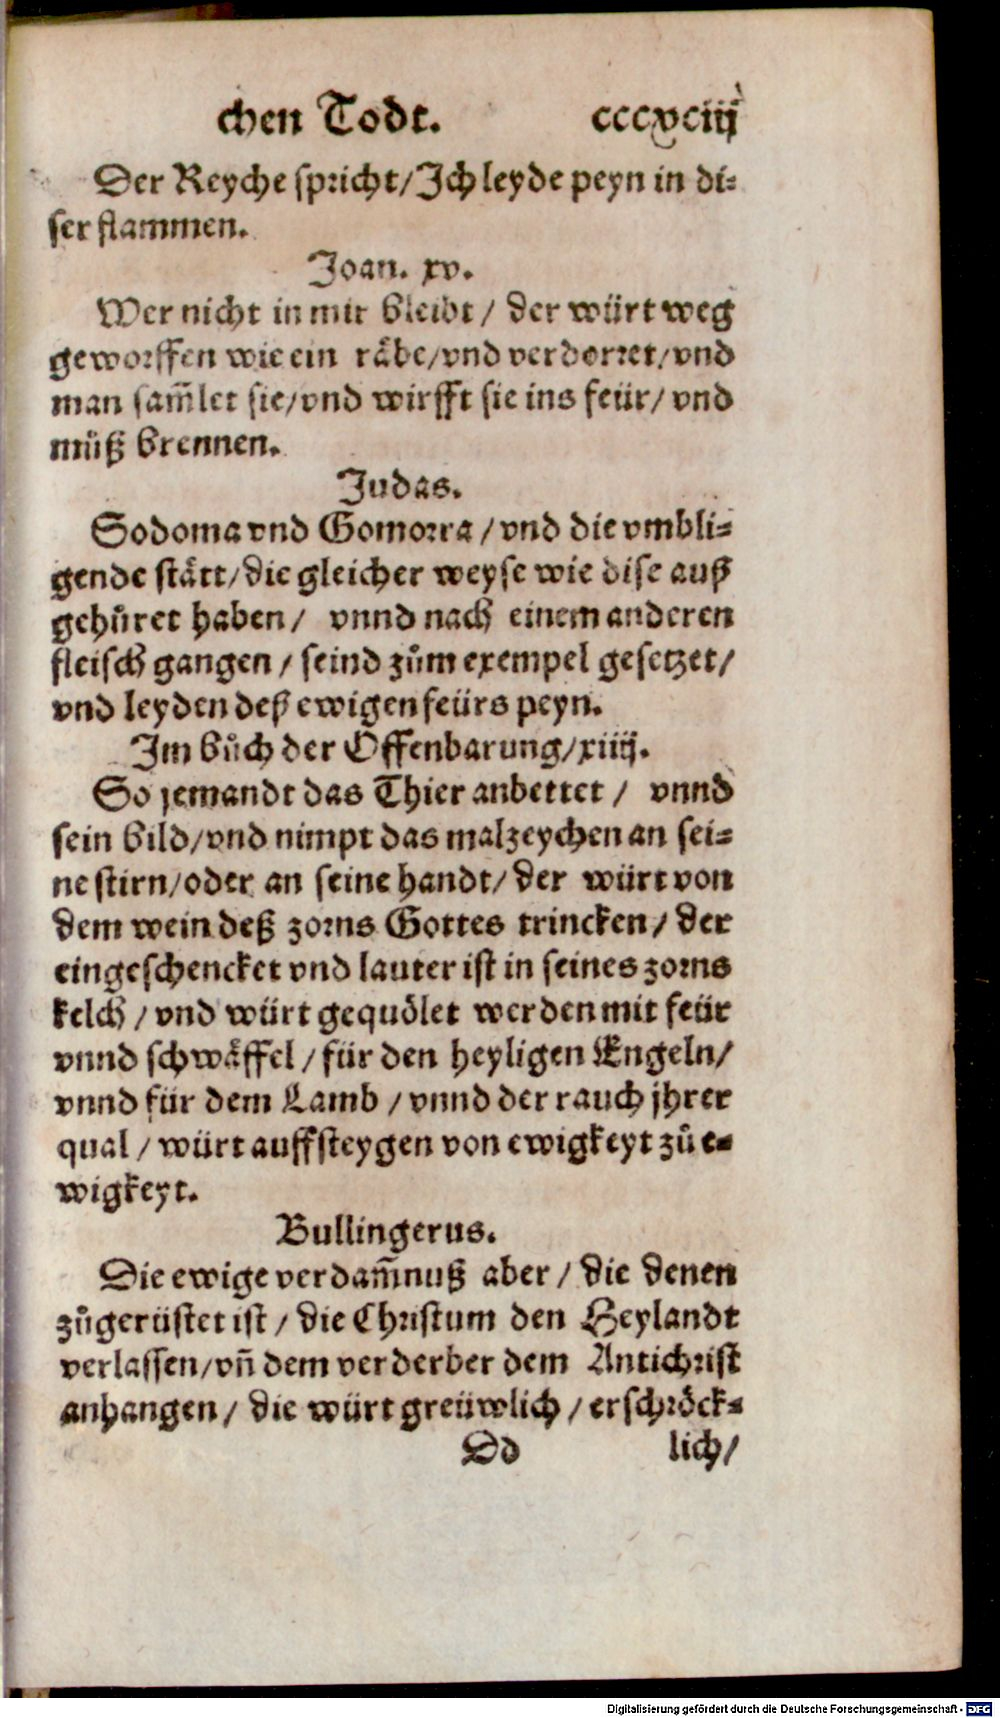 chen Todt. cccxciij
Der Reyche spricht/Ich leyde peyn in di=
ser flammen.
Joan. xv.
Wer nicht in mir bleibt/ der würt weg
geworffen wie ein räbe/vnd verdorret/vnd
man sam̃let sie/vnd wirfft sie ins feür/ vnd
můß brennen.
Judas.
Sodoma vnd Gomorra/vnd die vmbli=
gende stätt/die gleicher weyse wie dise auß
gehůret haben/ vnnd nach einem anderen
fleisch gangen/ seind zům exempel gesetzet/
vnd leyden deß ewigen feürs peyn.
Im bůch der Offenbarung/xiiij.
So jemandt das Thier anbettet/ vnnd
sein bild/vnd nimpt das malzeychen an sei=
ne stirn/oder an seine handt/ der würt von
dem wein deß zorns Gottes trincken/ der
eingeschencket vnd lauter ist in seines zorns
kelch/ vnd würt gequölet werden mit feür
vnnd schwäffel/ für den heyligen Engeln/
vnnd für dem Lamb/ vnnd der rauch jhrer
qual/ würt auffsteygen von ewigkeyt zů e=
wigkeyt.
Bullingerus.
Die ewige verdam̃nuß aber/ die denen
zůgerüstet ist/ die Christum den Heylandt
verlassen/vñ dem verderber dem Antichrist
anhangen/ die würt greüwlich/ erschröck=
Dd lich/
Digitalisierung gefördert durch die Deutsche Forschungsgemeinschaft - DFG